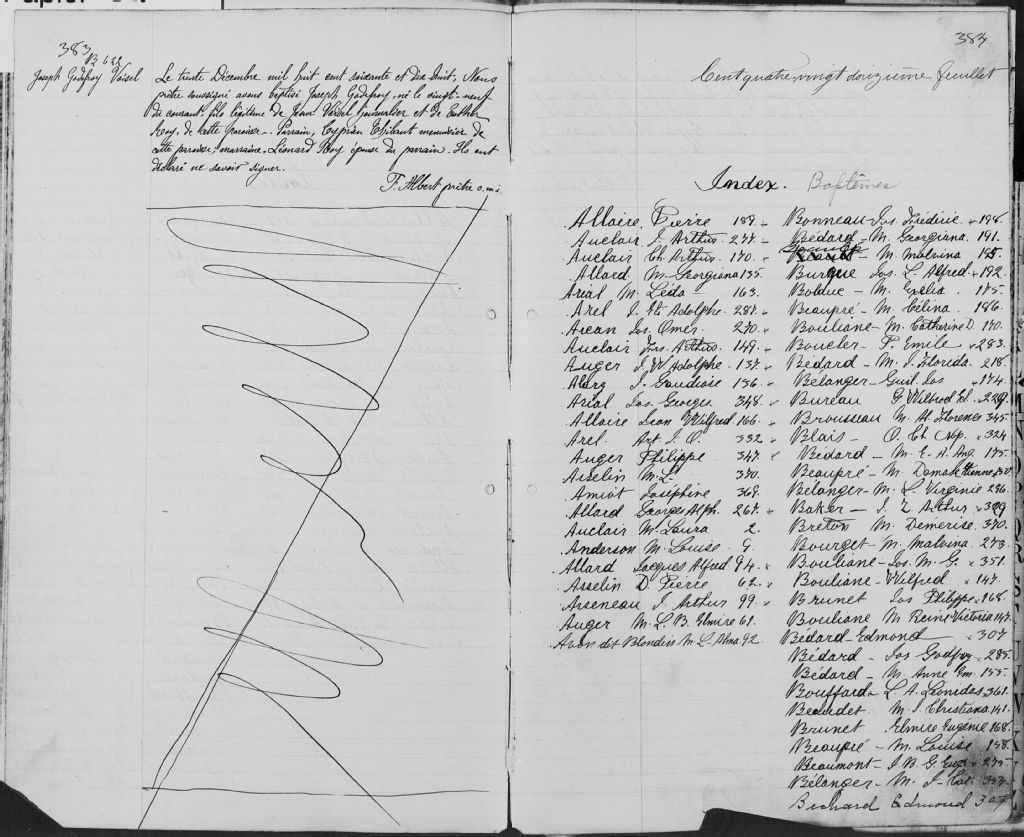 383
B 622
Joseph Godfroy Voisel
Le trente Décembre mil huit cent soixante et dix huit, Nous
prêtre soussigné avons baptisé Joseph Godfroy, né le vingt-neuf
du courant, fils légitime de Jean Voisel journalier et de Esther
Roy, de cette paroisse. Parrain, Cyprien Thibaut menuisier de
cette paroisse, marraine, Léonard Roy épouse du parrain. Ils ont
déclaré ne savoir signer.
F. Albert prêtre o.m.i.
383
Cent quatre vingt douzième feuillet
Index. Baptêmes
Allaire Pierre 189
Auclair J. Arthur 277
Auclair Ch. Arthur 170
Allard M. Georgiana 135
Arial M. Léda 163
Arel J. Et. Adolphe 287
Arcan Jos. Omer 270
Auclair Jos. Arthur 149
Auger J. W. Adolphe 137
Alary J. Gaudiose 156
Arial Jos. Georges 348
Allaire Léon Wilfred 166
Arel Art. J. O. 332
Auger Philippe 347
Asselin M. L. 370
Amiot Joséphine 369
Allard Georges Alph. 267
Auclair M. Laura 2
Anderson M. Louise 9
Allard Jacques Alfred 94
Asselin D. Pierre 62
Arseneau J. Arthur 99
Auger M. L. B. Elmire 61
Avon dit Blondin M. L. Alma 92
Bonneau Jos. Fréderic 198
Bédard M. Georgiana 191
M. Malvina
Burque Jos. L. Alfred 192
Bolduc M. Exélia 175
Beaupré M. Célina 186
Bouliane M. Catherine D. 170
Boucler P. Emile 283
Bédard M. J. Florida 218
Bélanger Guil. Jos 174
Bureau G. Wilfred 229
Brousseau M. Florence 345
Blais O. Ch. 324
Bédard M. E. A. Ang. 175
Beaupré M. Etienne
Bélanger M. L. Virginie 236
Baker J. Z. Arthur 309
Breton M. Demerise 370
Bourget M. Malvina 273
Bouliane Jos. M. G. 351
Bouliane Wilfred 147
Brunet Jos Philippe 168
Bouliane M Reine Victoria 147
Bédard Edmond 307
Bédard Jos Godfroy 285
Bédard M. Anne Em. 155
Bouffard L. A. Léonidas 361
Beaudet M. J. Christiana 141
Brunet Elmire Eugénie 168
Beaupré M. Louise 158
Beaumont J. B. G. 275
Bélanger M. J.
Bechard Edmond 307